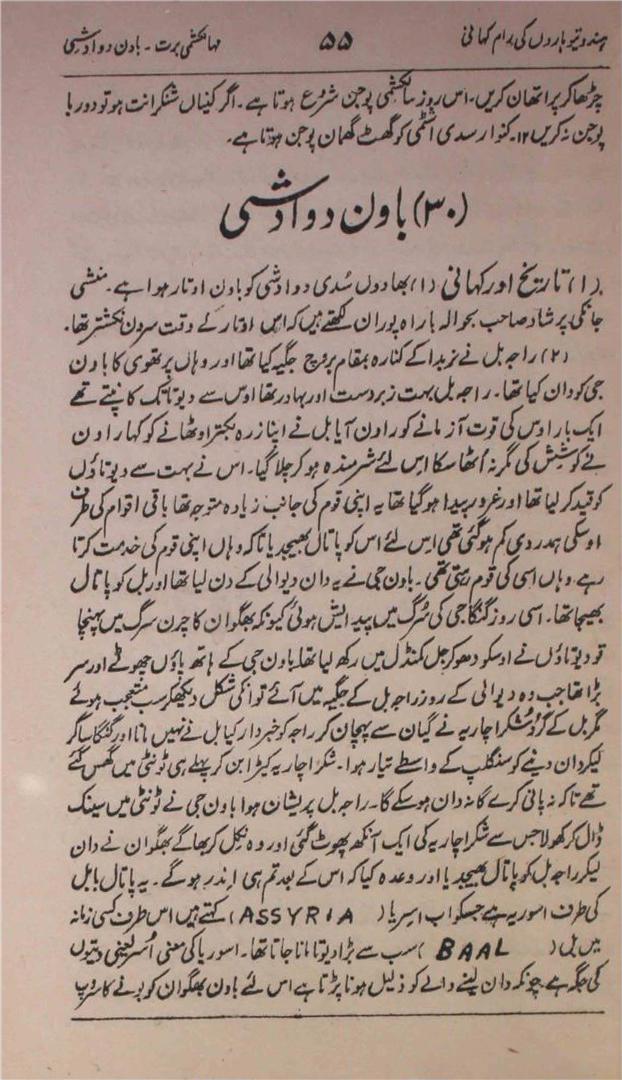 ہندو تیوہاروں کی رام کہانی ۵۵ مہا لکشمی برت - باون دوادشی
چڑھا کر پراتھان کریں۔ اس روز سے لکشمی پوجن شروع ہوتا ہے۔ اگر کنیاں شنکرانت ہو تو دوربا
پوجن نہ کریں ۱۲۔ کنوار سدی اشٹمی کو گھٹ گھمان پوجن ہوتا ہے۔
(۳۰) باون دوادشی
(۱) تاریخ اور کہانی (۱) بھادوں سُدی دوادشی کو باون اوتار ہوا ہے۔ منشی
جانکی پرشاد صاحب بحوالہ باراہ پوران لکھتے ہیں کہ اس اوتار کے وقت سرون نکشتر تھا۔
(۲) راجہ بل نے نربدا کے کنارہ بمقام بروچ جگیہ کیا تھا اور وہاں پرتھوی کا باون
جی کو دان کیا تھا۔ راجہ بل بہت زبردست اور بہادر تھا اوس سے دیوتا تک کانپتے تھے
ایک بار اوس کی قوت آزمانے کو راون آیا بل نے اپنا زرہ بکتر اوٹھانے کو کہا راون
نے کوشش کی مگر نہ اُٹھا سکا اس لئے شرمندہ ہو کر چلا گیا۔ اس نے بہت سے دیوتاؤں
کو قید کر لیا تھا اور غرور پیدا ہو گیا تھا یہ اپنی قوم کی جانب زیادہ متوجہ تھا باقی اقوام کی طرف
اوسکی ہمدردی کم ہو گئی تھی اس لئے اس کو پاتال بھیجدیا تا کہ وہاں اپنی قوم کی خدمت کرتا
رہے وہاں اسی کی قوم رہتی تھی۔ باون جی نے یہ دان دیوالی کے دن لیا تھا اور بل کو پاتال
بھیجا تھا۔ اسی روز گنگا جی کی سُرگ میں پیدایش ہوئی کیونکہ بھگوان کا چرن سرگ میں پہنچا
تو دیوتاؤں نے اوسکو دھو کر جل کمنڈل میں رکھ لیا تھا۔ باون جی کے ہاتھ پاؤں چھوٹے اور سر
بڑا تھا جب وہ دیوالی کے روز راجہ بل کے جگیہ میں آئے تو انکی شکل دیکھکر سب متعجب ہوئے
مگر بل کے گرو شکرا چاریہ نے گیان سے پہچان کر راجہ کو خبردار کیا بل نے نہیں مانا اور گنگا ساگر
لیکر دان دینے کو سنکلپ کے واسطے تیار ہوا۔ شکرا چاریہ کیڑا بن کر پہلے ہی ٹونٹی میں گھس گئے
تھے تا کہ نہ پانی گرے گا نہ دان ہو سکے گا۔ راجہ بل پریشان ہوا باون جی نے ٹونٹی میں سینک
ڈال کر کھولا جس سے شکرا چاریہ کی ایک آنکھ پھوٹ گئی اور وہ نکل کر بھاگے بھگوان نے دان
لیکر راجہ بل کو پاتال بھیجدیا اور وعدہ کیا کہ اس کے بعد تم ہی اندر ہو گے۔ یہ پاتال بابل
کی طرف اسوریہ ہے جسکو اب اسریا (ASSYRIA) کہتے ہیں اس طرف کسی زمانہ
میں بل (BAAL) سب سے بڑا دیوتا مانا جاتا تھا۔ اسوریا کی معنی اُسر یعنی دیتیوں
کی جگہ ہے چونکہ دان لینے والے کو ذلیل ہونا پڑتا ہے اس لئے باون بھگوان کو بونے کا سروپ